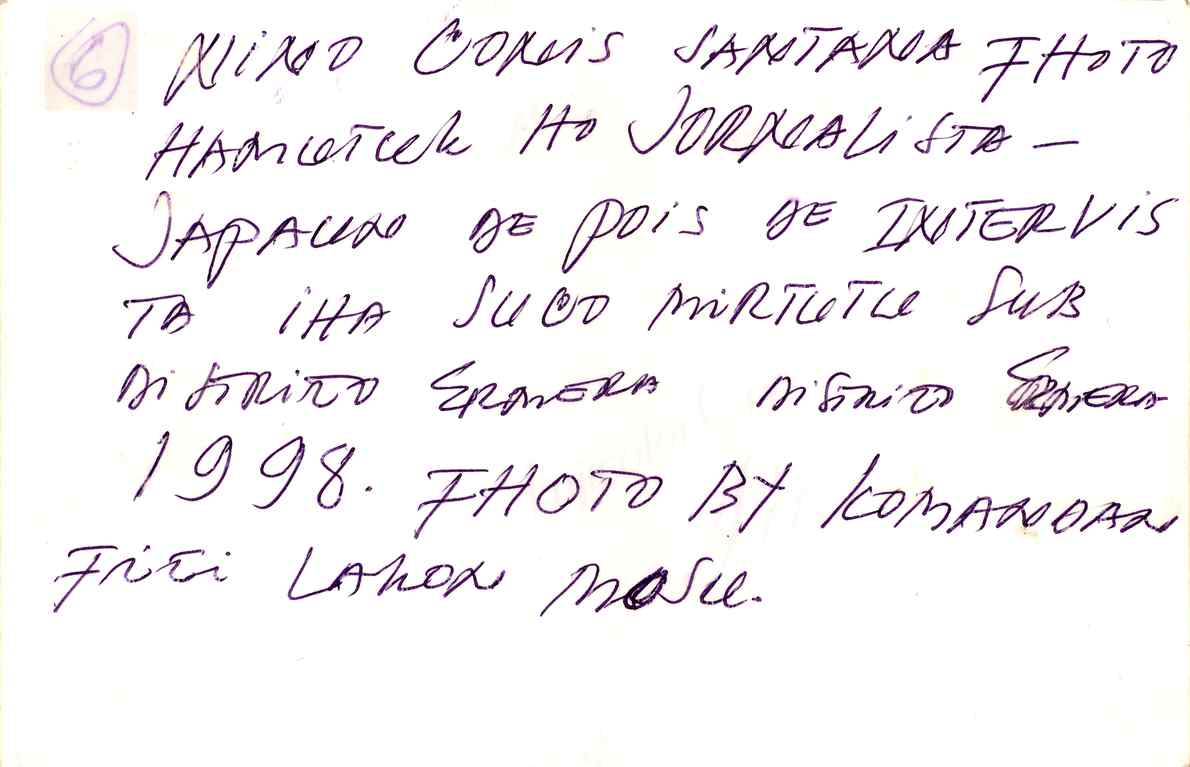 6 NINO CONIS SANTANA FHOTO
HAMUTUK HO JORNALISTA -
JAPAUN DE POIS DE INTERVIS
TA IHA SUCO MIRTUTU SUB
DISTRITO ERMERA DISTRITO ERMERA
1998. FHOTO BY KOMANDAN
FITI LAKON MOSU.